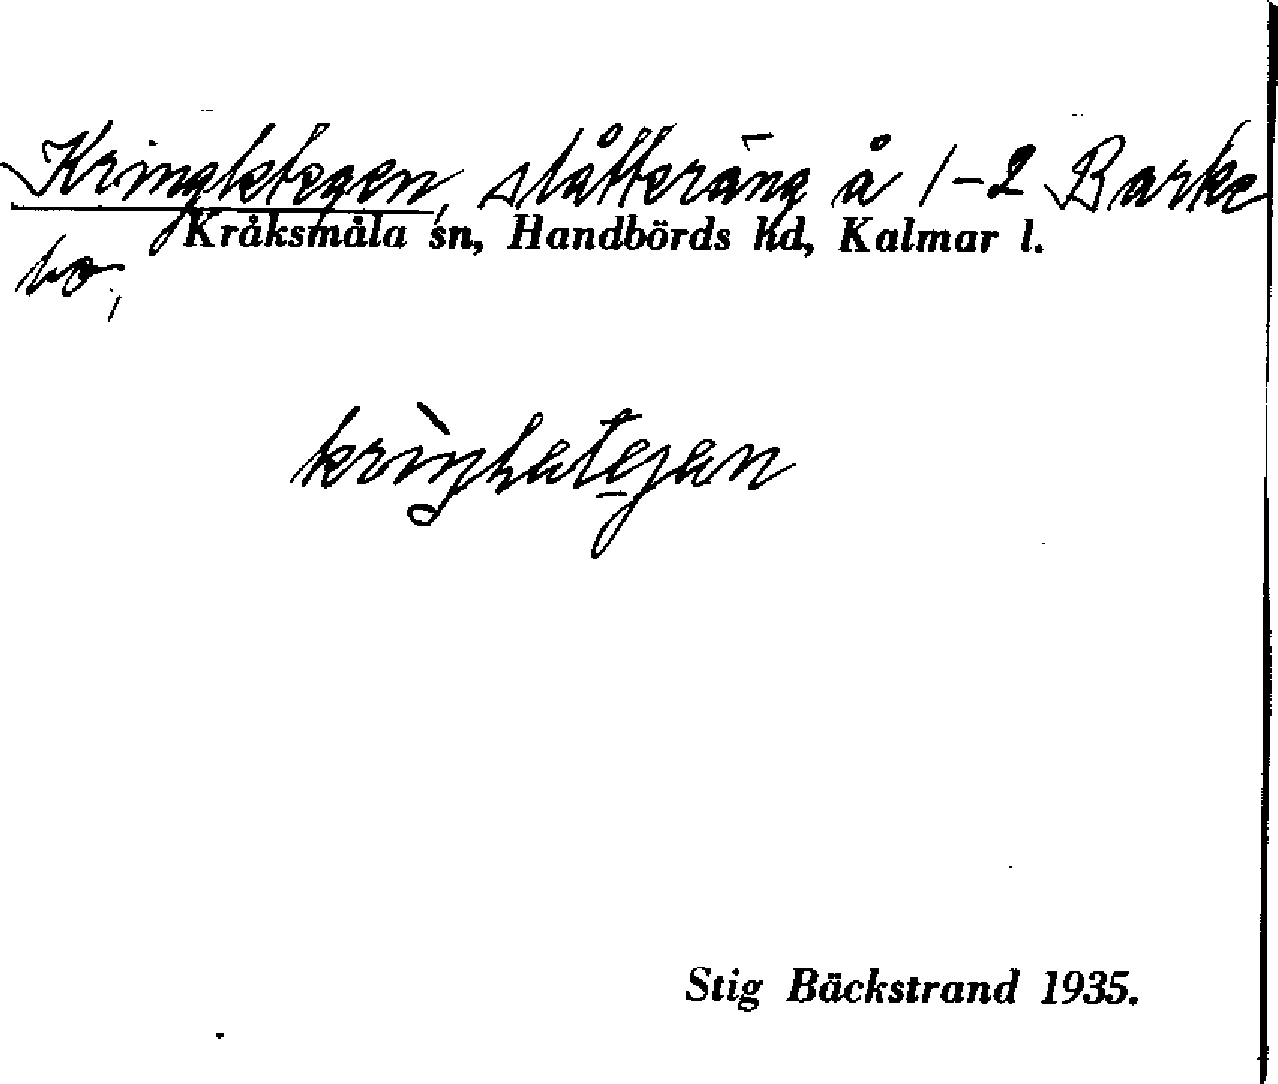 Kringletegen, slåtteräng å 1-2 Barke
Kråksmåla sn, Handbörds hd, Kalmar l.
bo,
kriŋlategan
Stig Bäckstrand 1935.